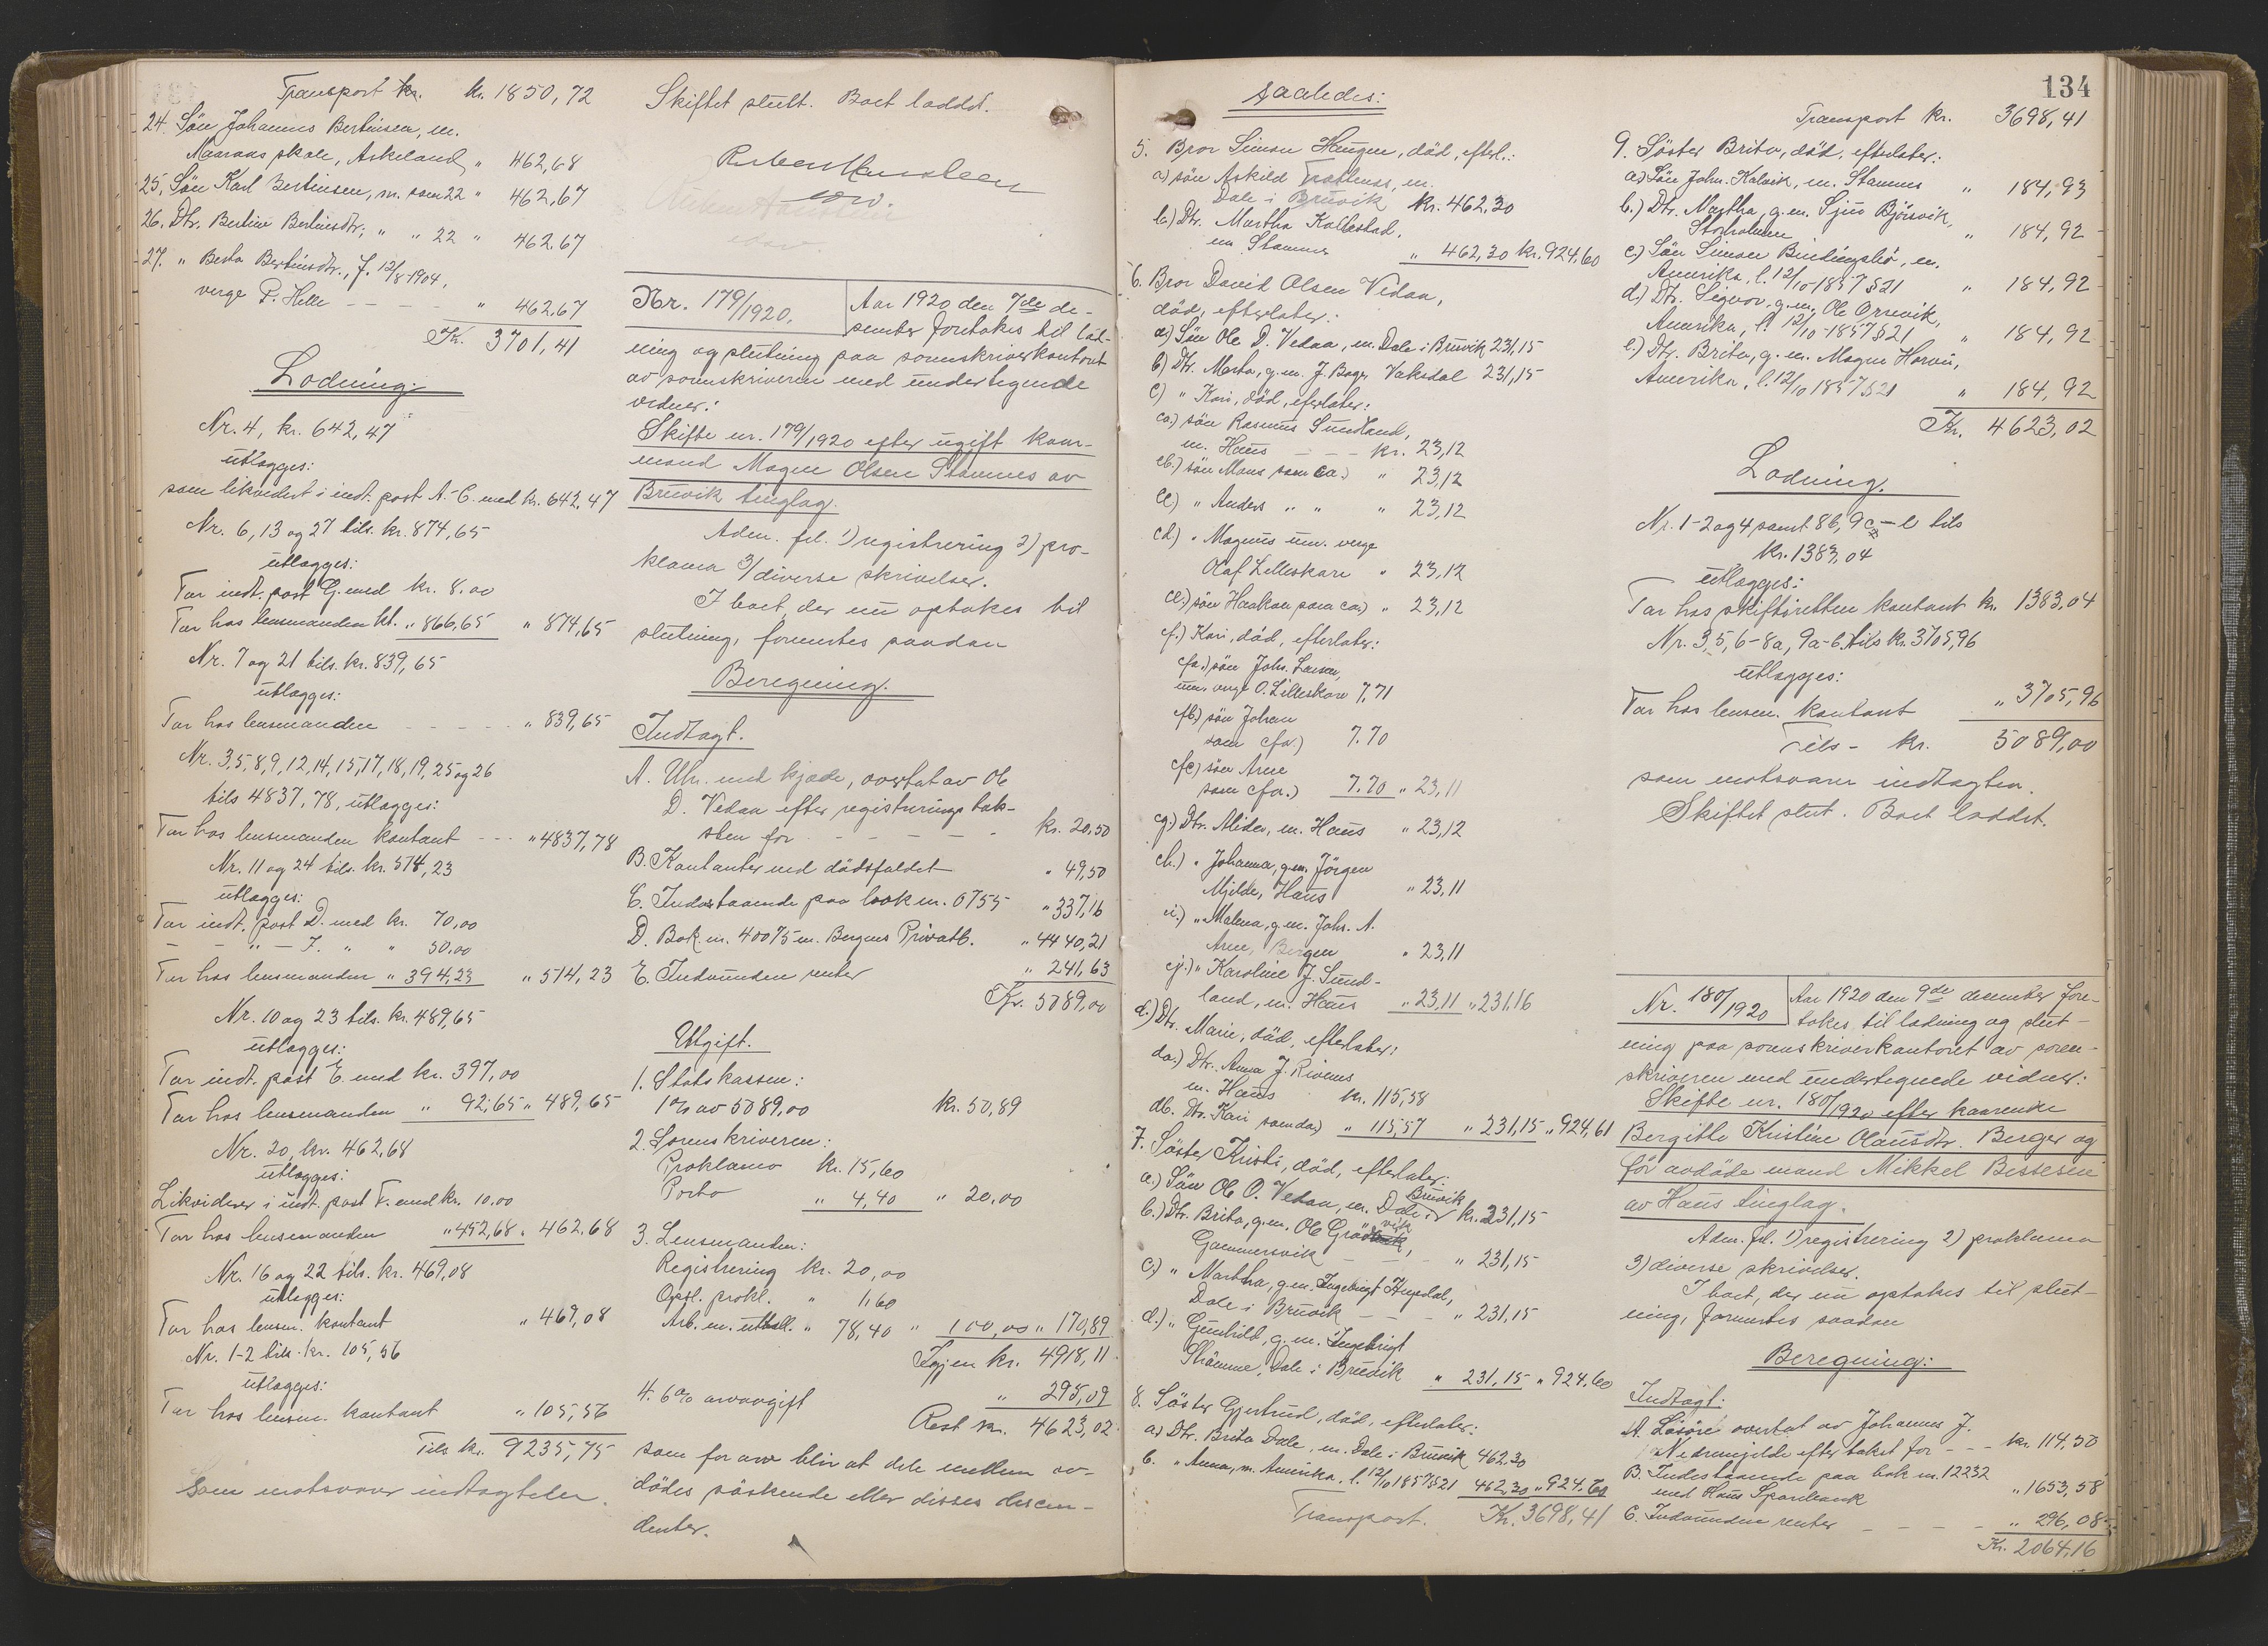 Transport kr. kr. 1850,72
24. Sön Johannes Bertinsen, m.
Maaraas skole, Askeland „ 462,68
25. Sön Karl Bertinsen, m. som 22 „ 462,67
26. Dtr. Bertine Bertinsdtr., „ „ 22 „ 462,67
27. „ Berta Bertinsdtr., f. 12/8-1904,
verge P. Helle — — — „ 462,67
Kr. 3701,41
Lodning:
Nr. 4, kr. 642,47
utlægges:
som likvidert i indt. post A.-C. med kr. 642,47
Nr. 6, 13 og 27 tils. kr. 874,65
utlægges:
Tar indt. post G. med kr. 8.00
Tar hos lensmanden kt. „ 866,65 „ 874,65
Nr. 7 og 21 tils. kr. 839,65
utlægges:
Tar hos lensmanden — — — „ 839,65
Nr. 3, 5, 8, 9, 12, 14, 15, 17, 18, 19, 25 og 26
tils 4837,78, utlægges:
Tar hos lensmanden kontant — — „ 4837,78
Nr. 11 og 24 tils. kr. 514,23
utlægges:
Tar indt. post D. med kr. 70,00
— — „ — F. „ „ 50,00
Tar hos lensmanden „ 394,23 „ 514,23
Nr. 10 og 23 tils. kr. 489,65
utlægges:
Tar indt. post E. med kr. 397,00
Tar hos lensmanden „ 92,65 „ 489,65
Nr. 20, kr. 462,68
utlægges:
Likviderer i indt. post F. med kr. 10,00
Tar hos lensmanden „ 452,68 „ 462,68
Nr. 16 og 22 tils. kr. 469,08
utlægges:
Tar hos lensm. kontant „ 469,08
Nr. 1-2 tils. kr. 105,56
utlægges:
Tar hos lensm. kontant „ 105,56
Tils kr. 9235,75
Som motsvarer indtægten.
Skiftet slutt. Boet loddet.
Nr. 179/1920.
Aar 1920 den 7de de-
sember foretokes til lod-
ning og slutning paa sorenskriverkontoret
av sorenskriveren med undertegnede
vidner:
Skifte nr. 179/1920 efter ugift kaar-
mand Magne Olsen Stamnes av
Bruvik tinglag.
Adm. fil. 1) registrering 2) pro-
klama 3/ diverse skrivelser.
I boet, der nu optokes til
slutning, formentes saadan
Beregning.
Indtægt.
A. Uhr med kjæde, overtat av Ole
D. Vedaa efter registreringstak-
sten for — — — — kr. 20,50
B. Kontanter ved dödsfaldet „ 49,50
C. Indestaaende paa bok nr. 6755 „ 337,16
D. Bok nr. 40075 m. Bergens Privatb. „ 4440,21
E. Indvundne renter „ 241,63
Kr. 5089,00
Utgift.
1. Statskassen:
1% av 5089,00 kr. 50,89
2. Sorenskriveren:
Proklama kr. 15,60
Porto „ 4,40 „ 20,00
3. Lensmanden:
Registrering kr. 20,00
Opsl. prokl. „ 1,60
Arb. m. utbetl. „ 78,40 „ 100,00 „ 170,89
Igjen kr. 4918,11
4. 6% arvavgift „ 295,09
Rest kr. 4623,02
som for arv blir at dele mellem av-
dödes söskende eller disses descen-
denter.
134
saaledes:
5. Bror Simon Haugen, död, efterl.:
a) sön Askild, m.
Dale i Bruvik kr. 462.30
b.) Dtr. Martha Kallestad,
m Stamnes „ 462,30 kr. 924.60
6. Bror David Olsen Vedaa,
död, efterlater:
a) Sön Ole D. Vedaa, m. Dale i Bruvik 231,15
b) Dtr. Marta, g.m. J. Boge Vaksdal 231,15
c) „ Kari, död, efterlater:
ca.) sön Rasmus Sundland,
m. Haus — — kr. 23,12
cb.) sön Mons som ca.) „ 23,12
cc.) „ Anders „ „ „ 23,12
cd.) „ Magnus um. verge
Olaf Lilleskare „ 23,12
ce.) sön Haakon som ca.) „ 23,12
cf.) Kari, död, efterlater:
cfa.) sön Johs. Larsen,
um. verge O. Lilleskare 7,71
cfb.) sön Johan
som cfa.) 7.70
cfc) sön Arne
som cfa.) 7.70 „ 23,11
cg.) Dtr. Alida, m. Haus „ 23,12
ch.) „ Johanna, g.m. Jörgen
Mjelde, Haus „ 23,11
ci.) „ Malena, g.m. Johs. A.
Arne, Bergen „ 23,11
cj.) „ Karoline J. Sund-
land, m. Haus „ 23,11 „ 231,16
d.) Dtr. Marie, död, efterlater:
da.) Dtr. Anna J. Rivenes
m. Haus kr. 115,58
db. Dtr. Kari som da) „ 115,57 „ 231,15 „ 924,61
7. Söster Kristi, död, efterlater:
a.) Sön Ole O. Vedaa, m. Dale i Bruvik kr. 231,15
b.) Dtr. Brita, g.m. Ole Grösvik,
Gammersvik — — — „ 231,15
c.) „ Martha, g.m. Ingebrigt,
Dale i Bruvik — — — „ 231,15
d.) „ Gunhild, g.m. Ingebrigt
Skömme, Dale i Bruvik „ 231,15 „ 924.60
8. Söster Gjertrud, död, efterlater:
a) Dtr. Brita Dale, m. Dale i Bruvik 462.30
b. „ Anna, m. Amerika l. 12/10 1857 § 21 462,30 „ 924.60
Transport. Kr. 3698,41
Transport kr. 3698,41
9. Söster Brita, död, efterlater:
a) Sön Johs. Kalvik, m. Stamnes „ 184,93
b.) Dtr. Martha, g.m. Sjur Björsvik,
Storholmen „ 184,92
c.) Sön Simon, m.
Amerika, l. 12/10-1857 § 21 „ 184,92
d.) Dtr. Signor, g.m. Ole Orsvik,
Amerika, l. 12/10-1857 § 21 „ 184,92
e.) Dtr. Brita, g.m. Magne Horvei,
Amerika, l. 12/10 1857 § 21 „ 184,92
Kr. 4623,02
Lodning.
Nr. 1-2 og 4 samt 8b, 9c-e tils
kr. 1383,04
utlægges:
Tar hos skifteretten kontant kr. 1383,04
Nr. 3, 5, 6-8a, 9a-b. tils kr. 3705,96
utlægges:
Tar hos lensm. kontant „ 3705,96
Tils — kr. 5089,00
som motsvarer indtægten.
Skiftet slut. Boet loddet.
Nr. 180/1920
Aar 1920 den 9de desember fore-
tokes til lodning og slut-
ning paa sorenskriverkontoret av soren-
skriveren med undertegnede vidner:
Skifte nr. 180/1920 efter kaarenke
Bergitte Kristine Olausdtr. Berger og
för avdöde mand Mikkel Bessesen
av Haus tinglag.
Adm. fil. 1) registrering 2) proklama
3) diverse skrivelser.
I boet, der nu optokes til slut-
ning, formentes saadan
Beregning:
Indtægt:
A. Lösöre overtat av Johannes J.
Nedremjelde efter takst for — — kr. 114,50
B. Indestaaende paa bok nr. 12232
med Haus Sparebank „ 1653,58
C. Indvundne renter — — — — „ 296,08
Kr. 2064,16